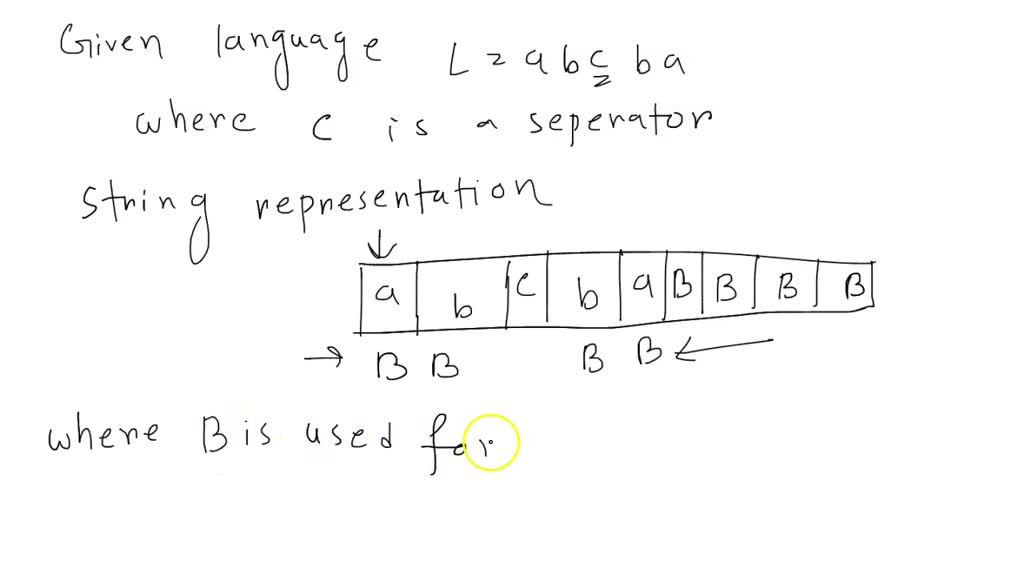 Given language L = abc ba
where c is a seperator
string representation
a b c b a B B B B
B B B B
where B is used for